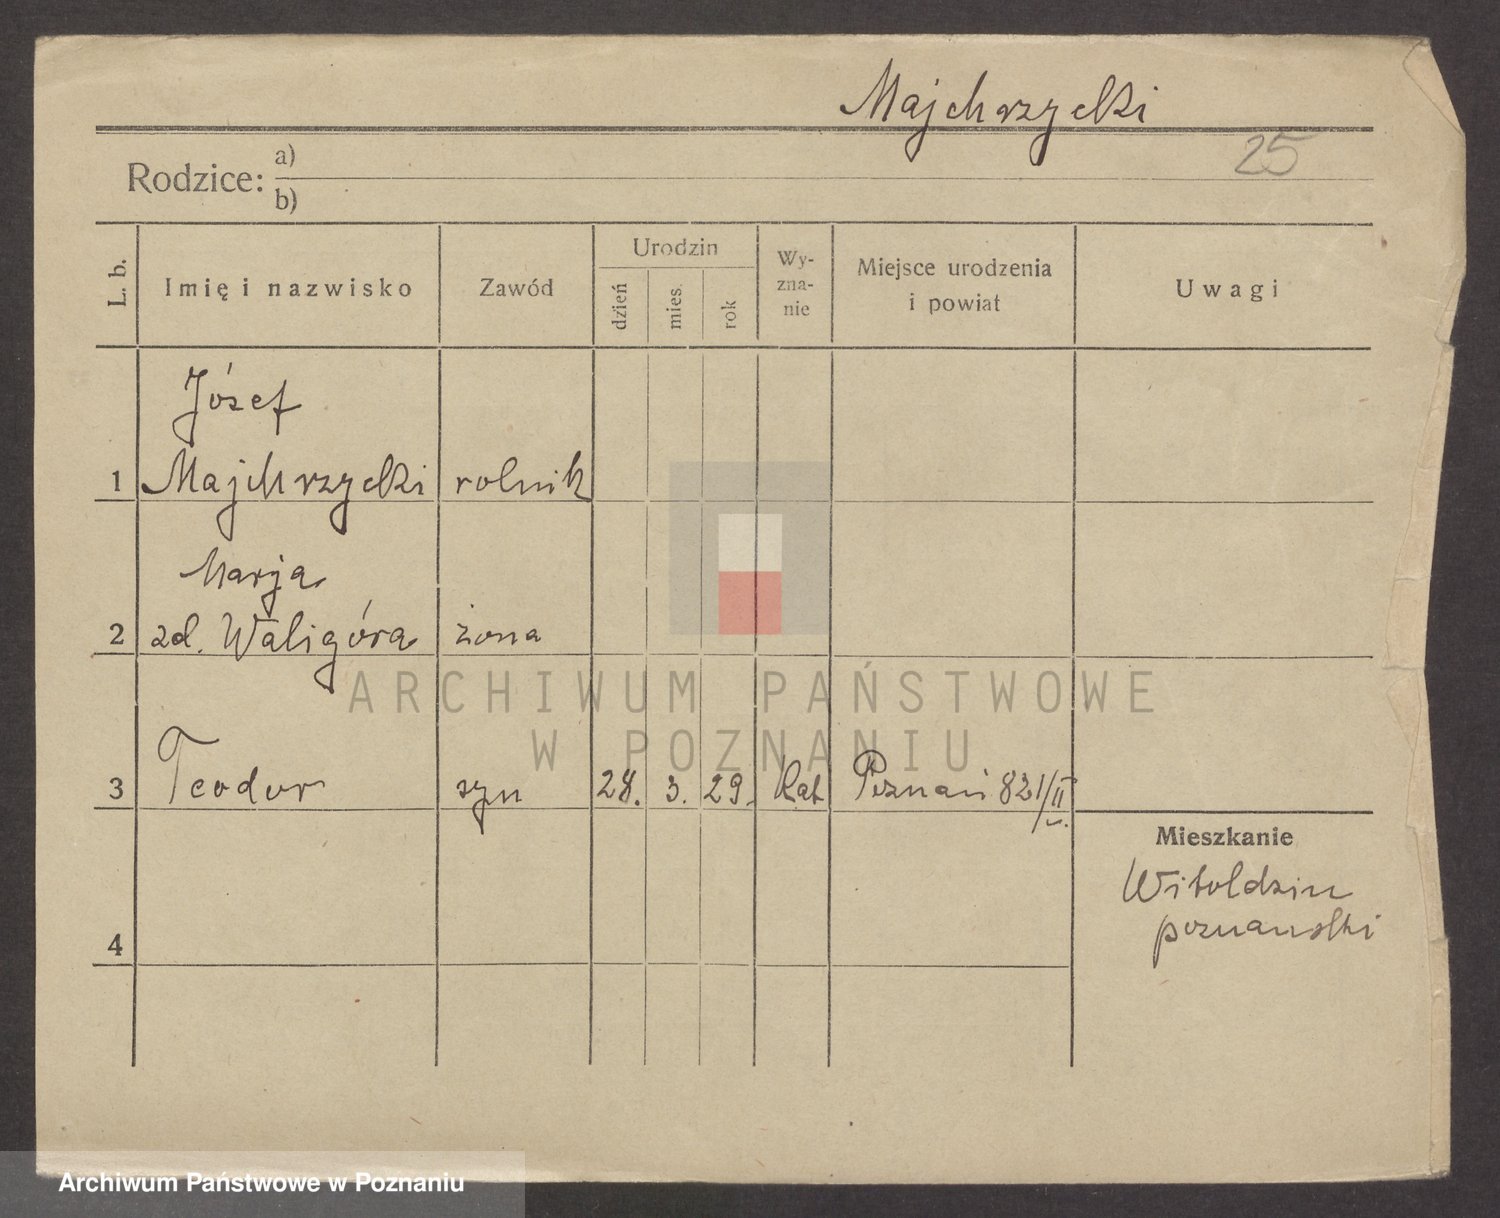 Majchrzycki
25
Rodzice: a)
b)
L. b.
Imię i nazwisko
Zawód
Urodzin
dzień
mies.
rok
Wy-
zna-
nie
Miejsce urodzenia
i powiat
Uwagi
Józef
1 Majchrzycki rolnik
Marja
2 zd. Waligóra żona
ARCHIWUM PAŃSTWOWE
W POZNANIU
3 Teodor syn 28. 3. 29. Kat Poznań 821/II
Mieszkanie
Witoldzin
poznański
4
Archiwum Państwowe w Poznaniu